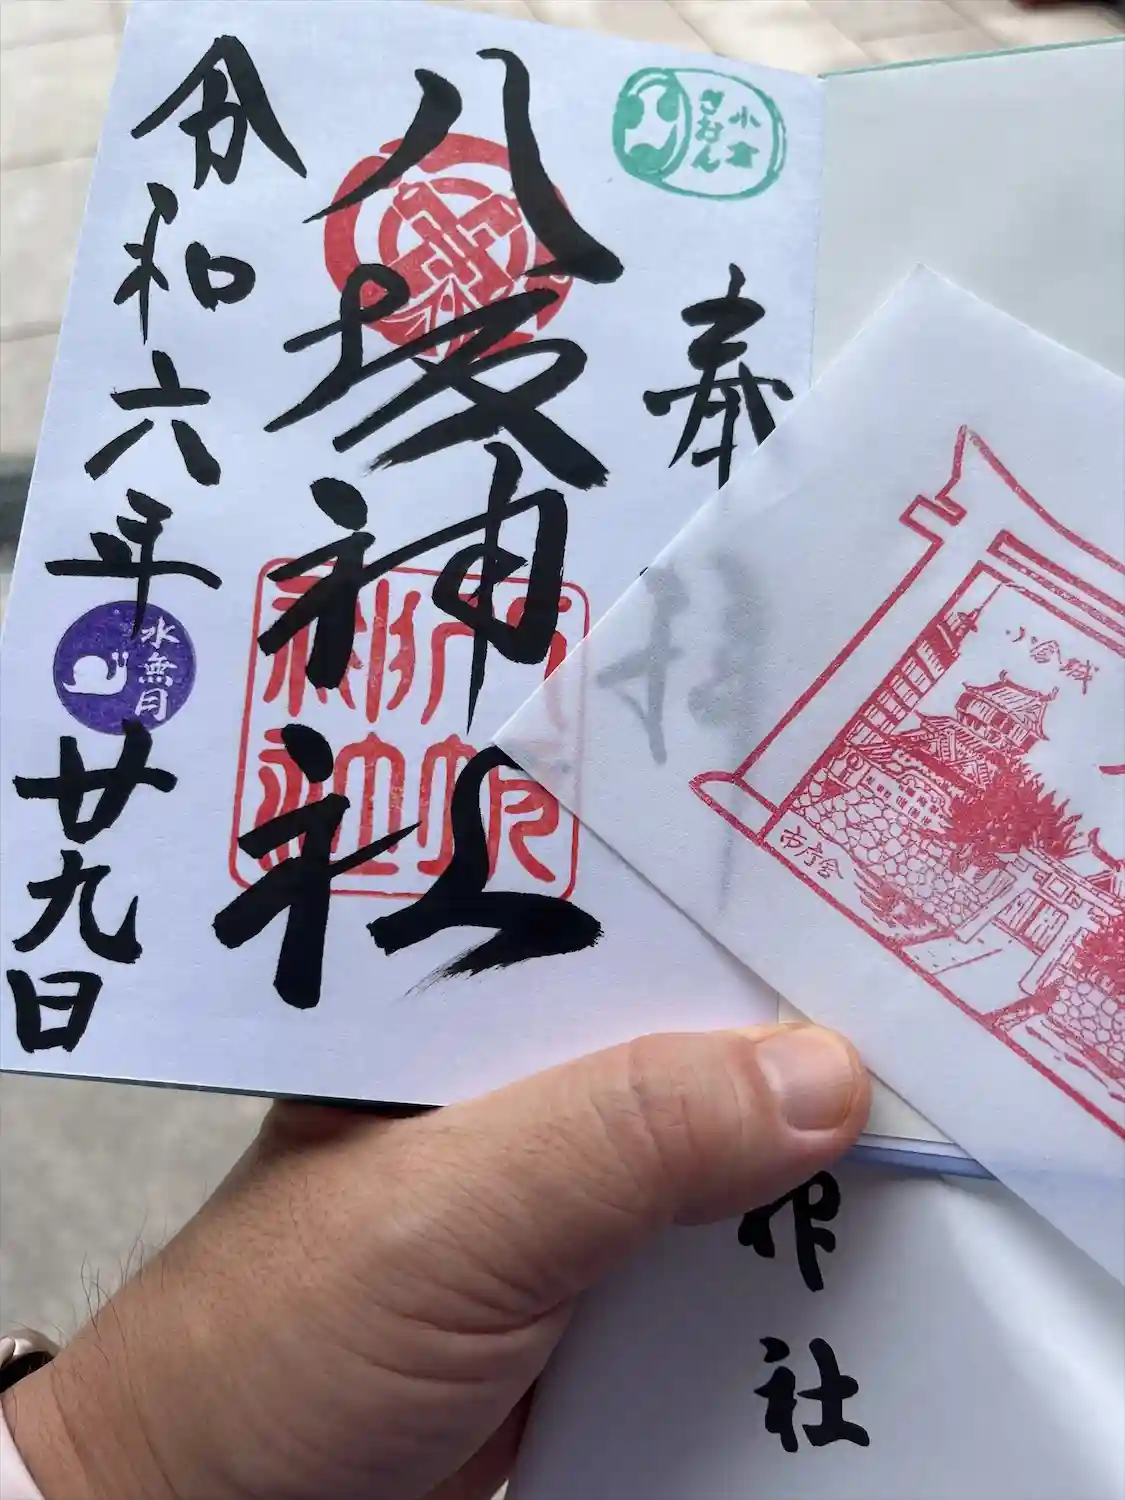 小倉
ぎおん
奉拝
八坂神社
八坂
神社
令和六年
水無月
廿九日
小倉城
市庁舎
社